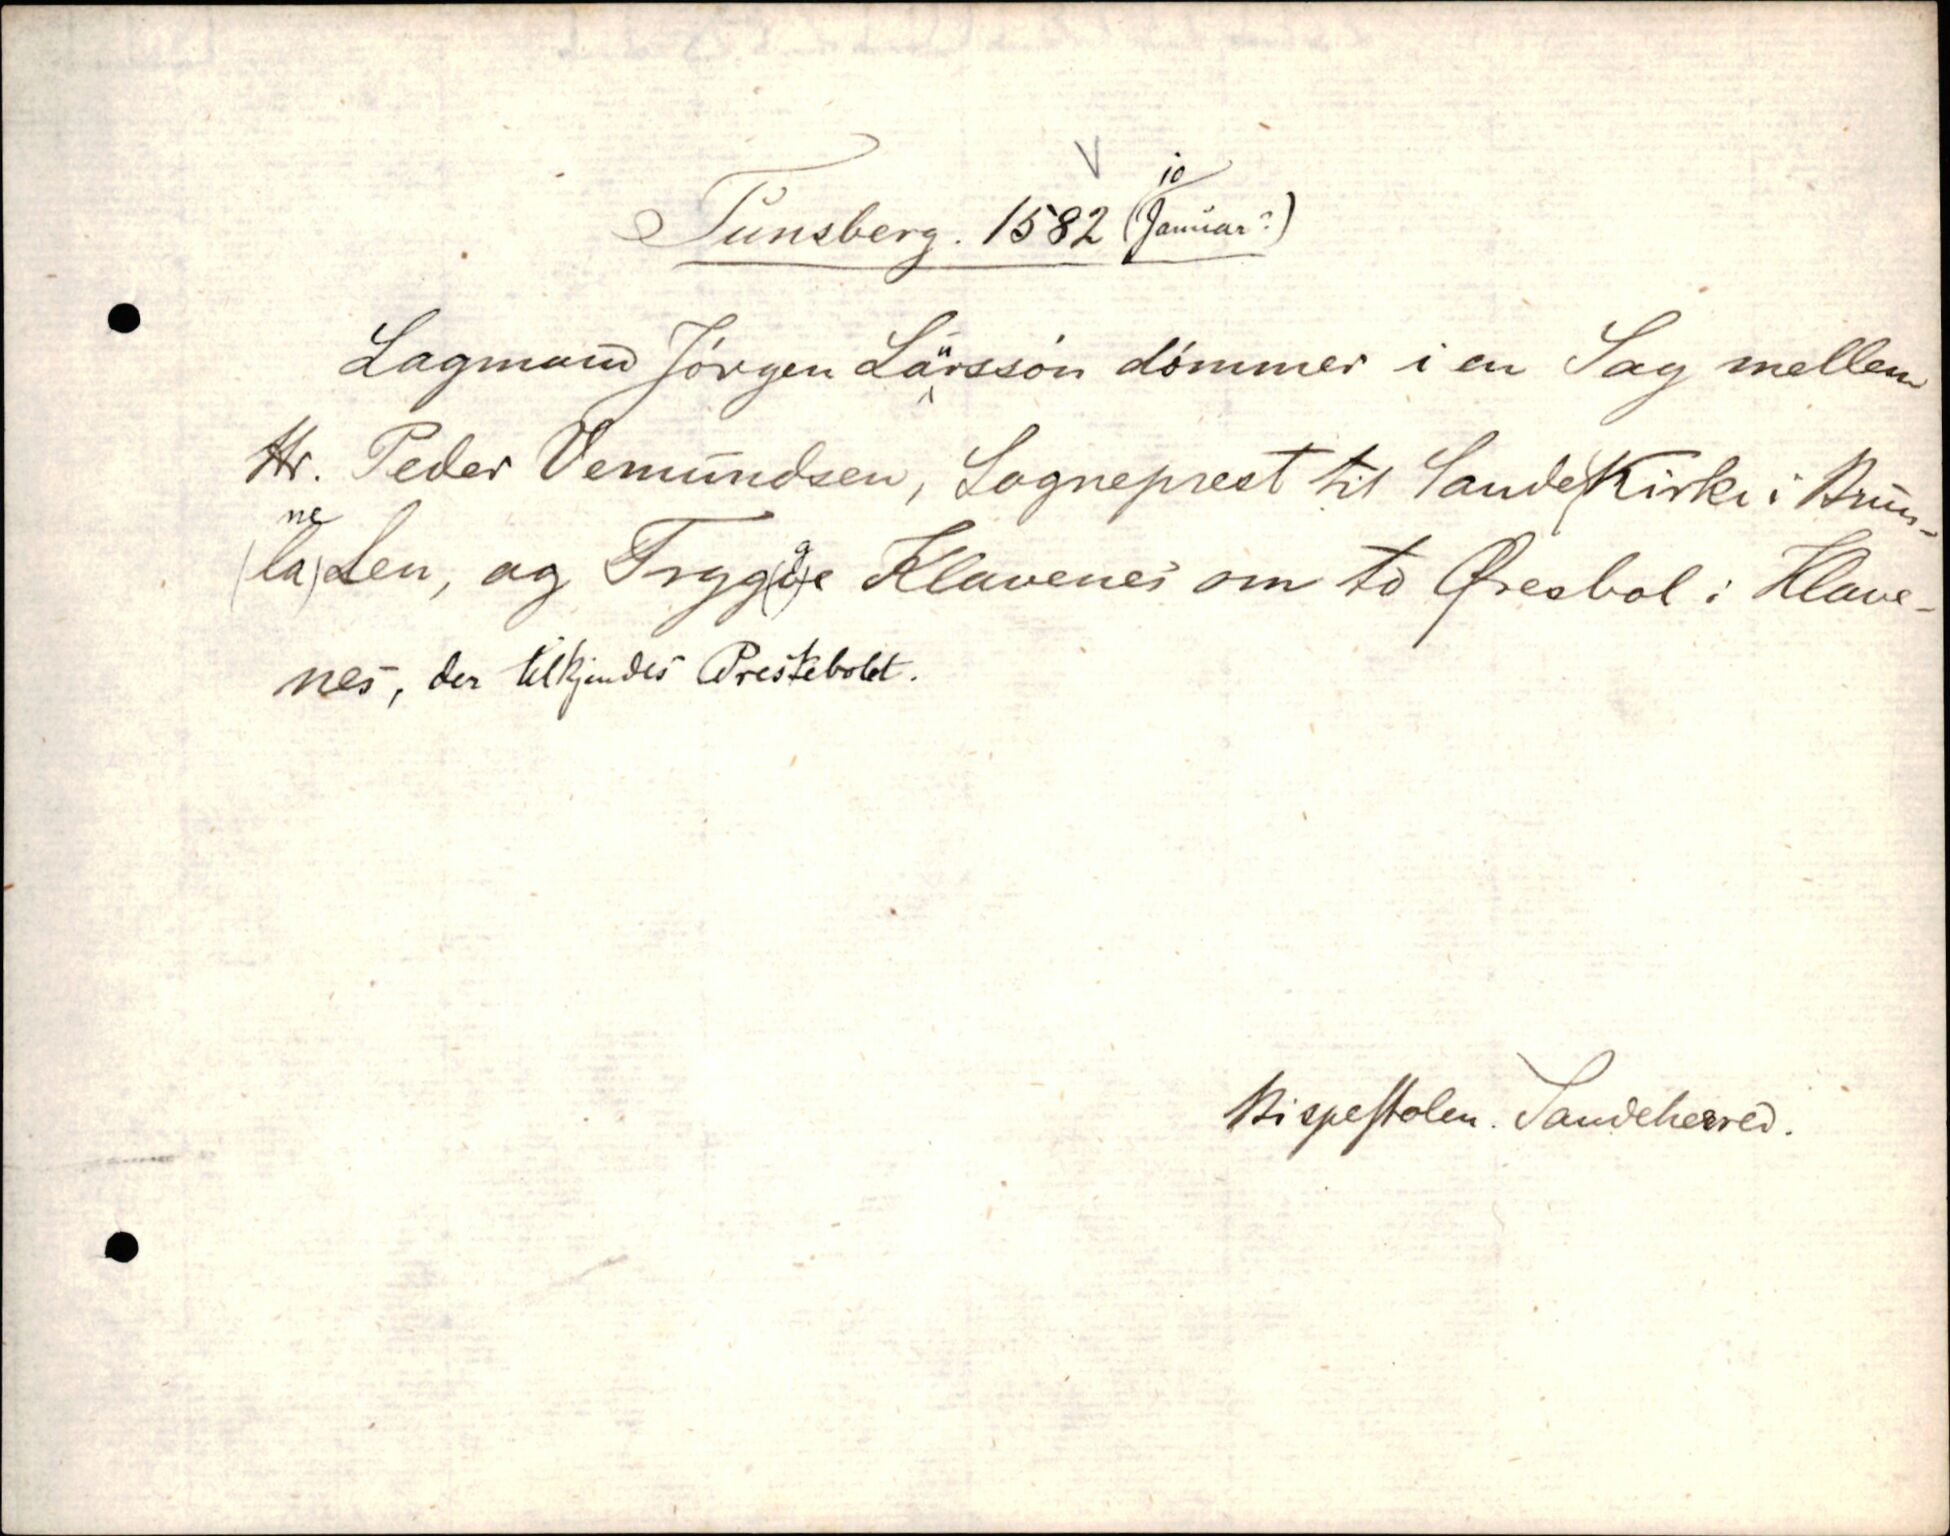 Tunsberg. 1582 (10 Januar?)
Lagmand Jórgen Lärssón dómmer i en Sag mellem
Hr. Peder Vemundsen, Sogneprest til Sande Kirke i Brun-
(la) ne Len, og Trygg(v)e Klavenes om to Øresbol i Klave-
nes, der tilkjendes Prestebolet.
Bispestolen. Sandeherred.